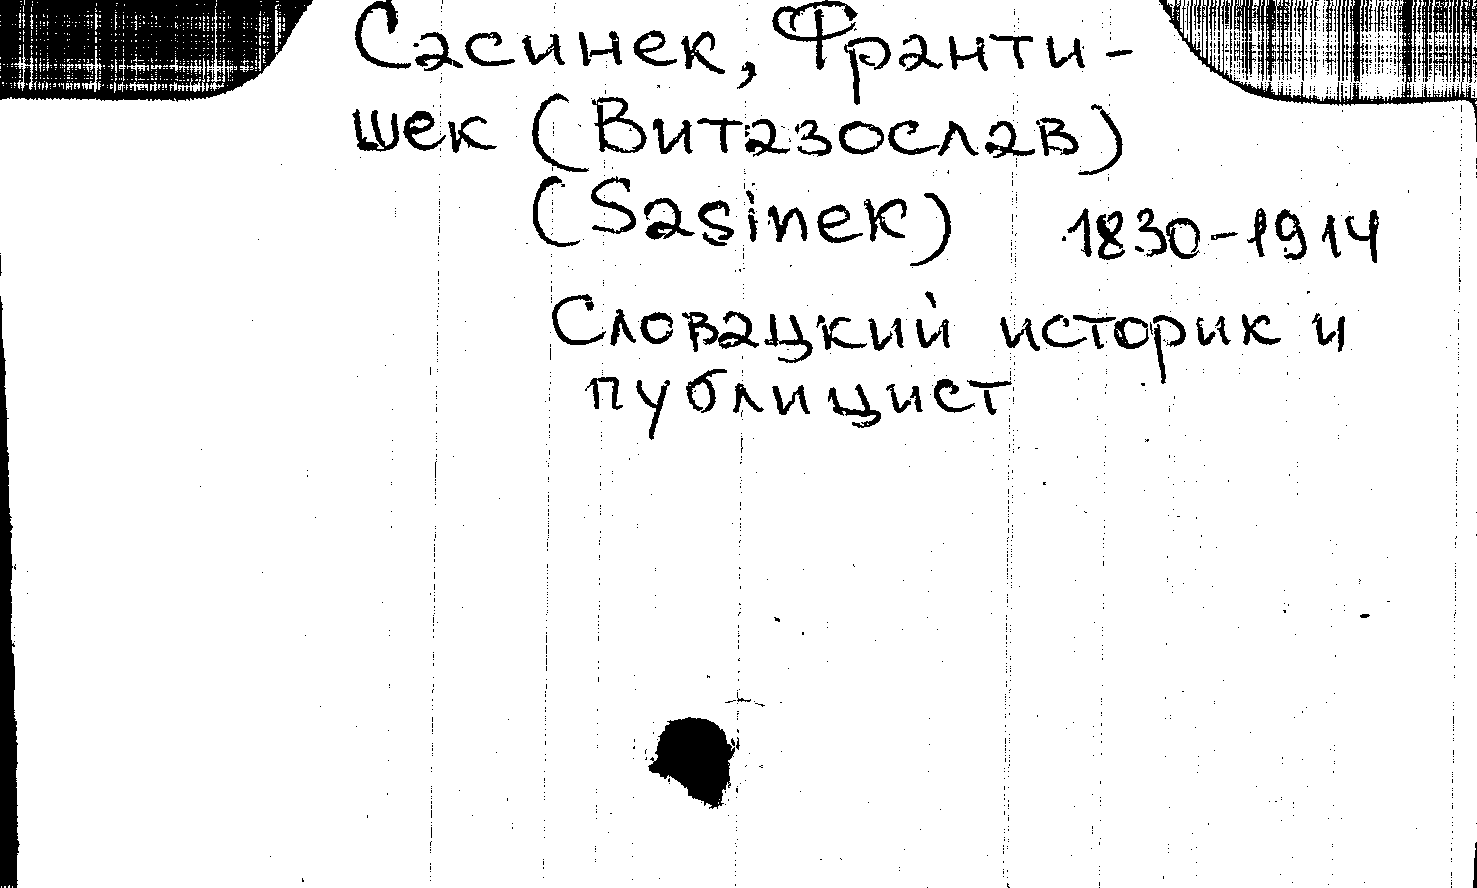 Сасинек, Франти-
шек (Витазослав)
(Sasinek) 1830-1914
Словацкий историк и
публицист